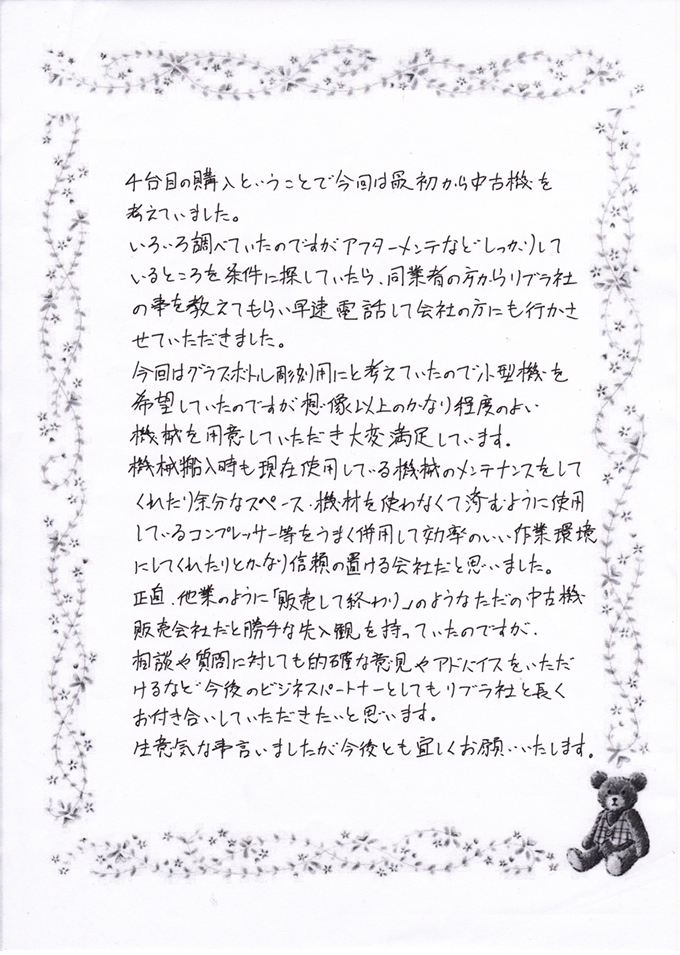 4台目の購入ということで今回は最初から中古機を
考えていました。
いろいろ調べていたのですがアフターメンテなどしっかりして
いるところを条件に探していたら、同業者の方からリブラ社
の事を教えてもらい早速電話して会社の方にも行かさ
せていただきました。
今回はグラスボトル彫刻用にと考えていたので小型機を
希望していたのですが想像以上のかなり程度のよい
機械を用意していただき大変満足しています。
機械搬入時も現在使用している機械のメンテナンスをして
くれたり余分なスペース・機材を使わなくて済むように使用
しているコンプレッサー等をうまく併用して効率のいい作業環境
にしてくれたりとかなり信頼の置ける会社だと思いました。
正直、他業のように「販売して終わり」のようなただの中古機
販売会社だと勝手な先入観を持っていたのですが、
相談や質問に対しても的確な意見やアドバイスをいただ
けるなど今後のビジネスパートナーとしてもリブラ社と長く
お付き合いしていただきたいと思います。
生意気な事言いましたが今後とも宜しくお願いいたします。